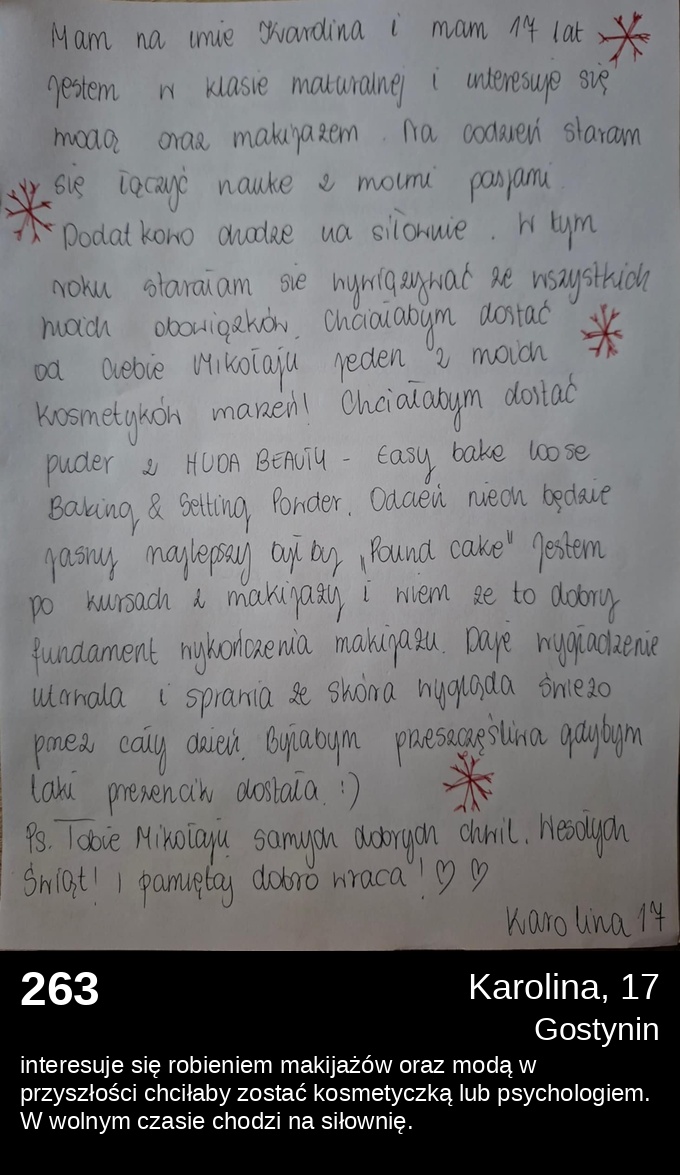 Mam na imie Karolina i mam 17 lat
Jestem w klasie maturalnej i interesuje się
modą oraz makijażem. Na codzień staram
się łączyć nauke z moimi pasjami
Dodatkowo chodze na siłownie. W tym
roku starałam sie wywiązywać ze wszystkich
moich obowiązków. Chciałabym dostać
od Ciebie Mikołaju jeden z moich
kosmetyków marzeń! Chciałabym dostać
puder z HUDA BEAUTY - Easy bake loose
Baking & Setting Powder. Odcień niech będzie
jasny najlepszy był by „Pound cake" Jestem
po kursach z makijaży i wiem że to dobry
fundament wykończenia makijażu. Daje wygładzenie
utrwala i sprawia że skóra wygląda świeżo
przez cały dzień. Byłabym przeszczęśliwa gdybym
taki prezencik dostała. :)
Ps. Tobie Mikołaju samych dobrych chwil. Wesołych
Świąt! i pamiętaj dobro wraca! ♡ ♡
Karolina 17
263
Karolina, 17
Gostynin
interesuje się robieniem makijażów oraz modą w
przyszłości chciłaby zostać kosmetyczką lub psychologiem.
W wolnym czasie chodzi na siłownię.